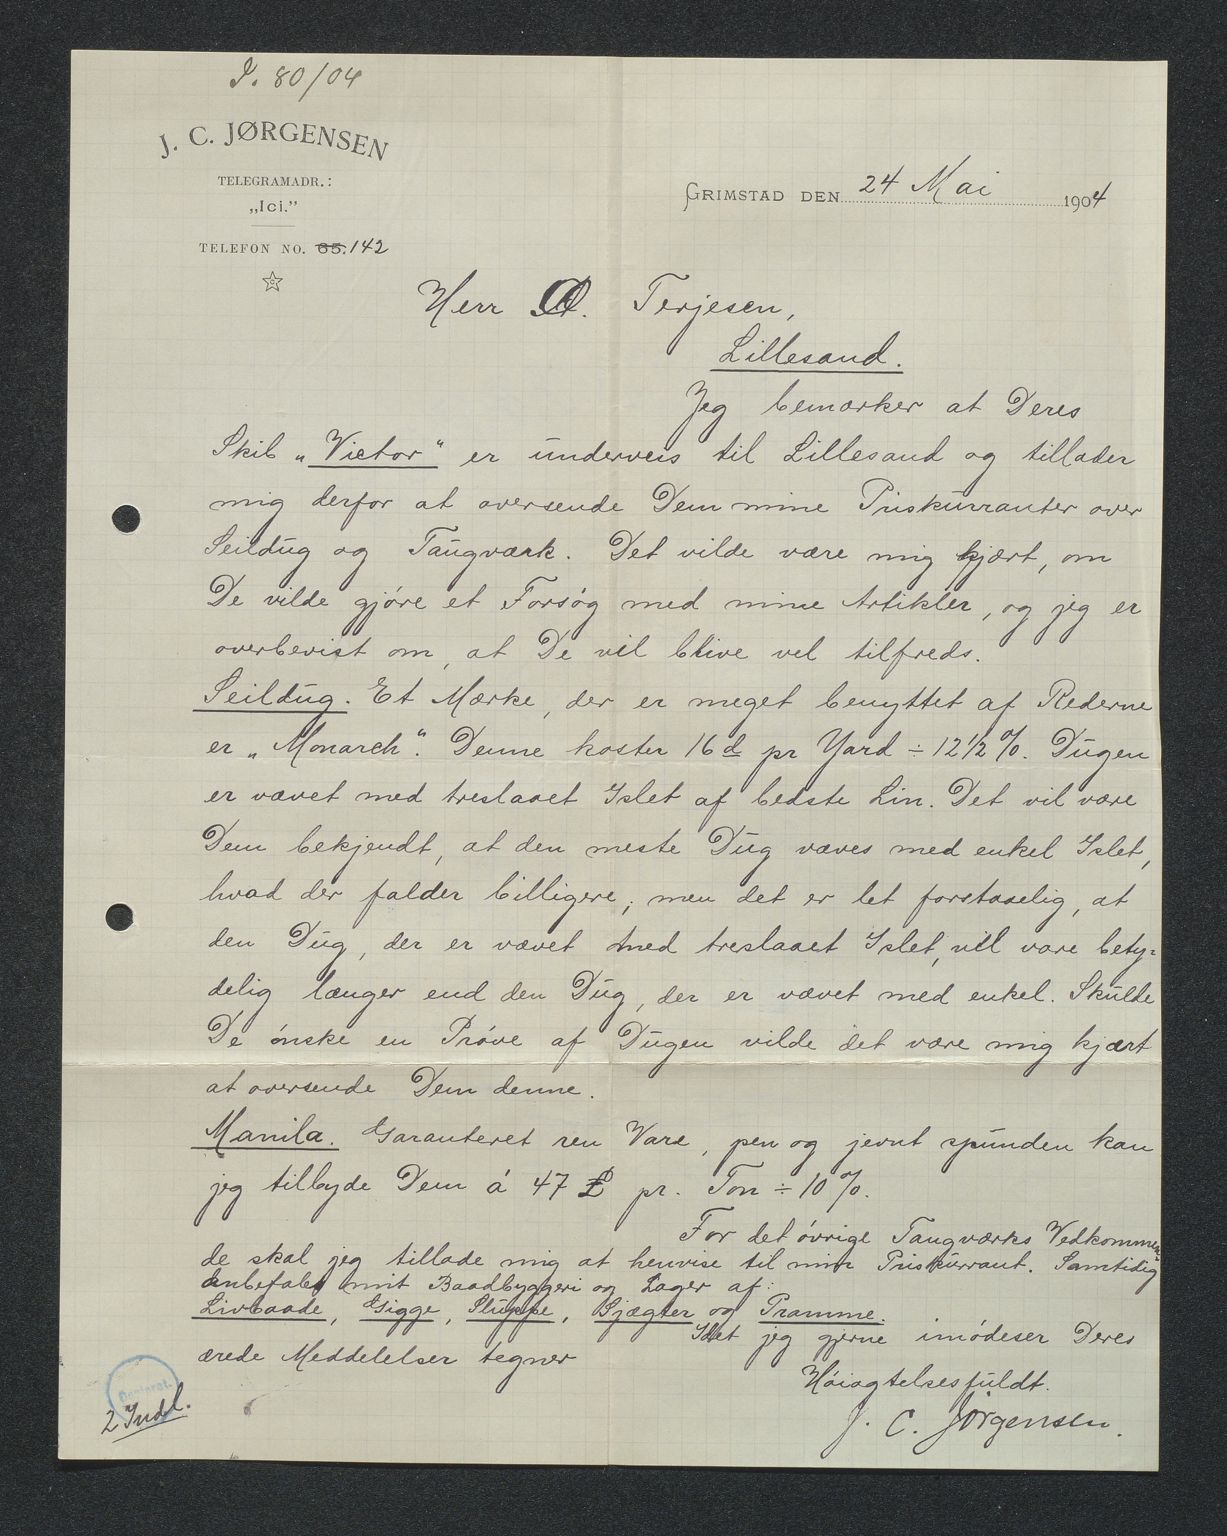 J. 80/04
J. C. JØRGENSEN
TELEGRAMADR.:
„Ici.”
TELEFON NO. 65. 142
GRIMSTAD DEN 24 Mai 1904
Herr O. Terjesen,
Lillesand.
Jeg bemærker at Deres
Skib „Victor“ er underveis til Lillesand og tillader
mig derfor at oversende Dem mine Priskurranter over
Seildug og Taugværk. Det vilde være mig kjært, om
De vilde gjöre et Forsög med mine Artikler, og jeg er
overbevist om, at De vil blive vel tilfreds.
Seildug. Et Mærke, der er meget benyttet af Rederne
er „Monarch“. Denne koster 16 d pr Yard ÷ 12 1/2 %. Dugen
er vævet med treslaaet Islet af bedste Lin. Det vil være
Dem bekjendt, at den meste Dug væves med enkel Islet,
hvad der falder billigere; men det er let forstaaelig, at
den Dug, der er vævet med treslaaet Islet, vil vare bety-
delig længer end den Dug, der er vævet med enkel. Skulde
De önske en Pröve af Dugen vilde det være mig kjært
at oversende Dem denne.
Manila. Garanteret ren Vare, pen og jevnt spunden kan
jeg tilbyde Dem á 47 £ pr. Ton ÷ 10 %.
For det övrige Taugværks Vedkommen-
de skal jeg tillade mig at henvise til min Priskurrant. Samtidig
anbefales mit Baadbyggeri og Lager af:
Livbaade, Gigge, Sluppe, Sjægter og Pramme.
Idet jeg gjerne imödeser Deres
ærede Meddelelser tegner
Höiagtelsesfuldt.
J. C. Jörgensen.
2 Indl.